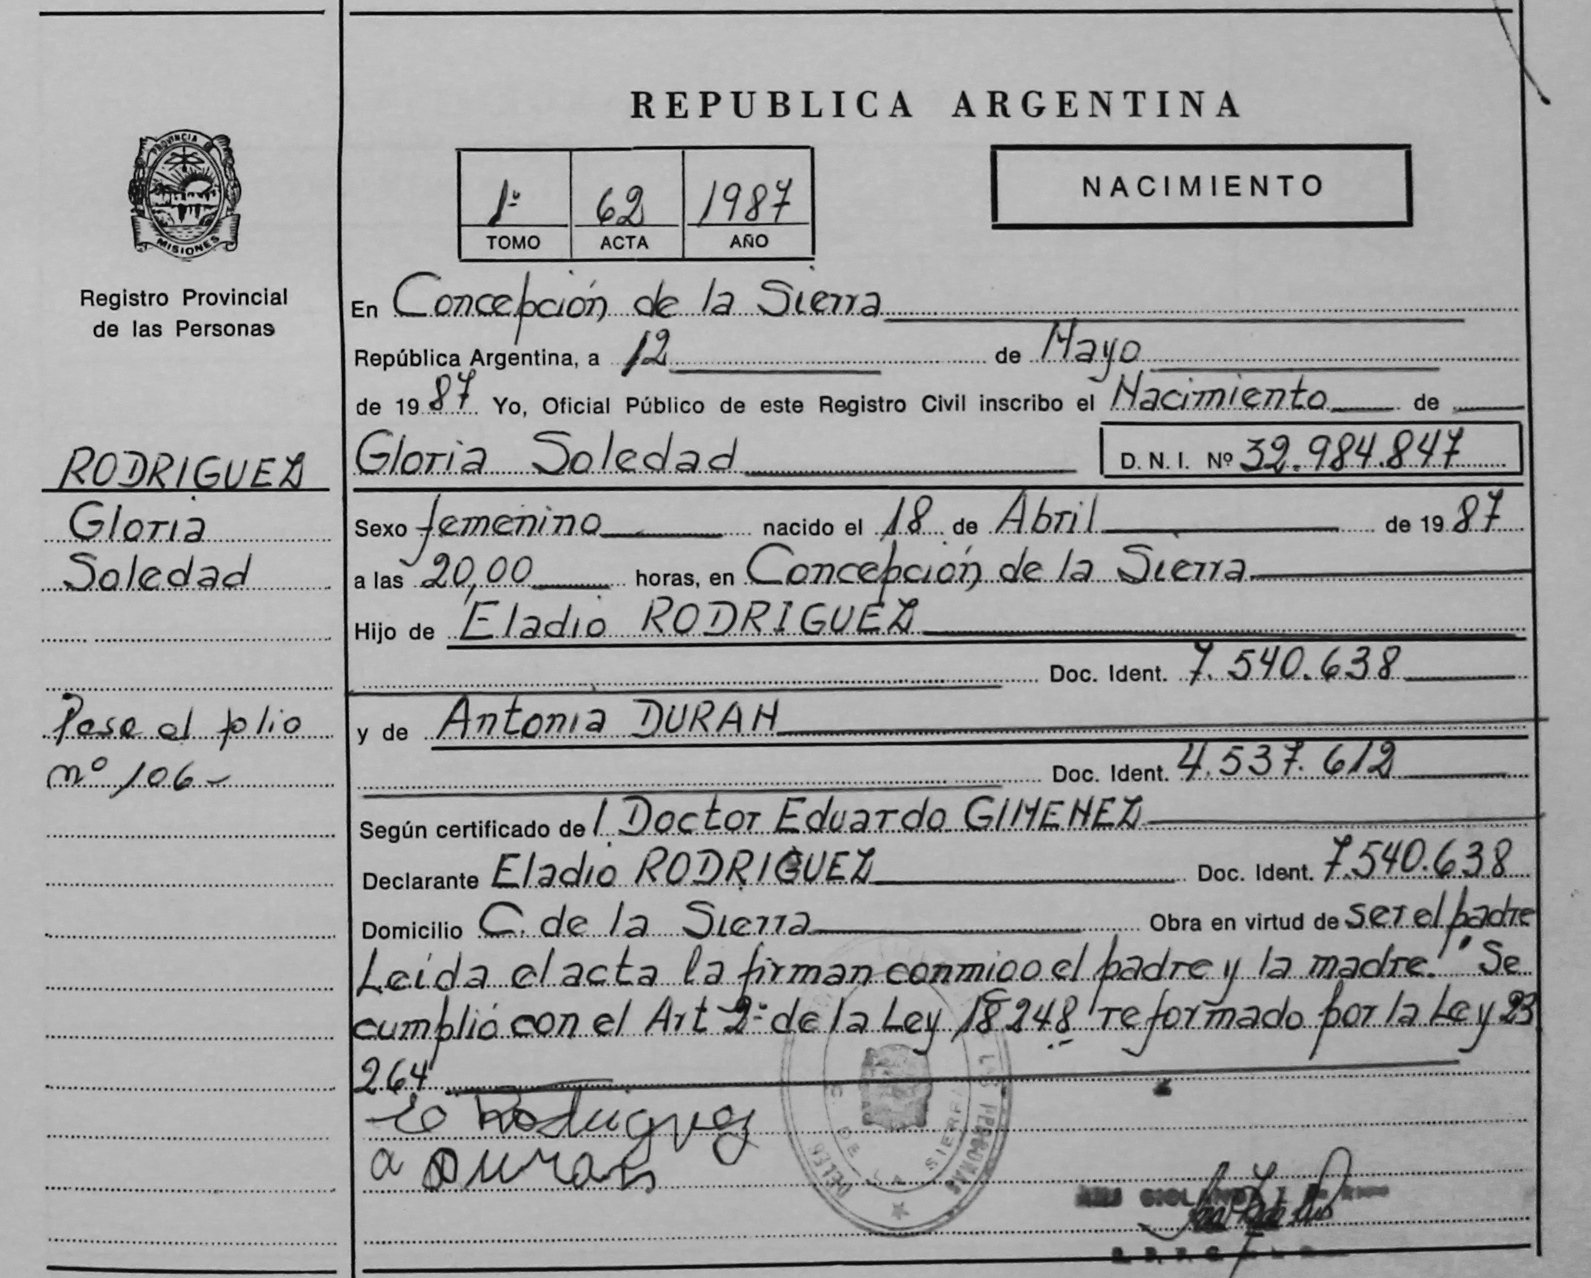 REPUBLICA ARGENTINA
PROVINCIA DE
MISIONES
Registro Provincial
de las Personas
1º 62 1987
TOMO ACTA AÑO
NACIMIENTO
En Concepción de la Sierra
República Argentina, a 12 de Mayo
de 1987 Yo, Oficial Público de este Registro Civil inscribo el Nacimiento de
Gloria Soledad D. N. I. Nº 32.984.847
RODRIGUEZ
Gloria
Soledad
Sexo femenino nacido el 18 de Abril de 1987
a las 20,00 horas, en Concepción de la Sierra
Hijo de Eladio RODRIGUEZ
Doc. Ident. 7.540.638
Pase al folio
nº 106-
y de Antonia DURAN
Doc. Ident. 4.537.612
Según certificado del Doctor Eduardo GIMENEZ
Declarante Eladio RODRIGUEZ Doc. Ident. 7.540.638
Domicilio C. de la Sierra Obra en virtud de ser el padre
Leida el acta la firman conmigo el padre y la madre. "Se
cumplió con el Art 2º de la Ley 18248 reformado por la Ley 23
264"
Rodriguez
a Duran
LAS PERSONAS
C. DE LA SIERRA
DELEG